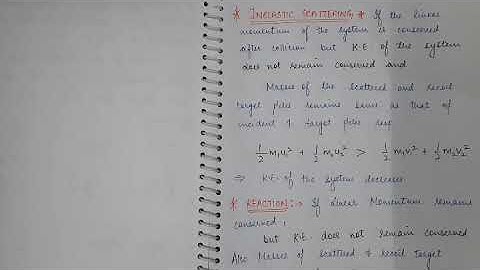 * INELASTIC SCATTERING * If the linear
momentum of the system is conserved
after collision but K.E of the system
does not remain conserved and
Masses of the scattered and recoil
target remains same as that of
incident & target resp
½ m₁u₁² + ½ m₂u₂² > ½ m₁v₁² + ½ m₂v₂²
⇒ K.E. of the system decreases
* REACTION :→ If Linear Momentum remains
conserved,
but K.E. does not remain conserved
Also Masses of scattered & recoil target